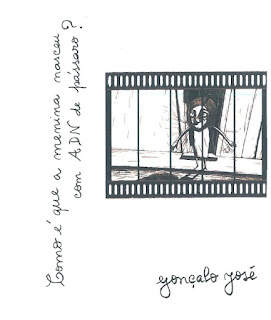 Como é que a menina nasceu
com ADN de pássaro?
gonçalo josé